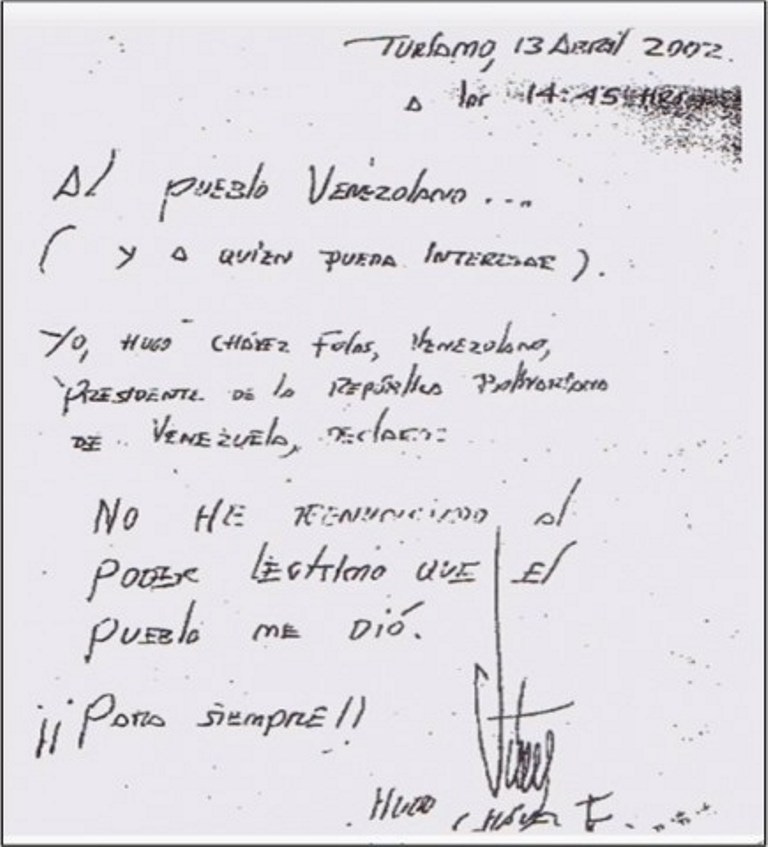 TURIAMO, 13 ABRIL 2002.
A las 14:45 HRS
Al PUEBlo VENEZOlANO...
( Y A QUIEN PUEDA INTERESAR ).
Yo, HUGO CHÁVEZ FRÍAS, VENEZOlANO,
PRESIDENTE DE lA REPÚBlICA BOlIVARIANA
DE VENEZUElA, DEClARO:
NO HE RENUNCIADO Al
PODER LEGÍTIMO QUE El
PUEBlo ME DIÓ.
¡¡PARA SIEMPRE!!
HUGO CHÁVEZ F.